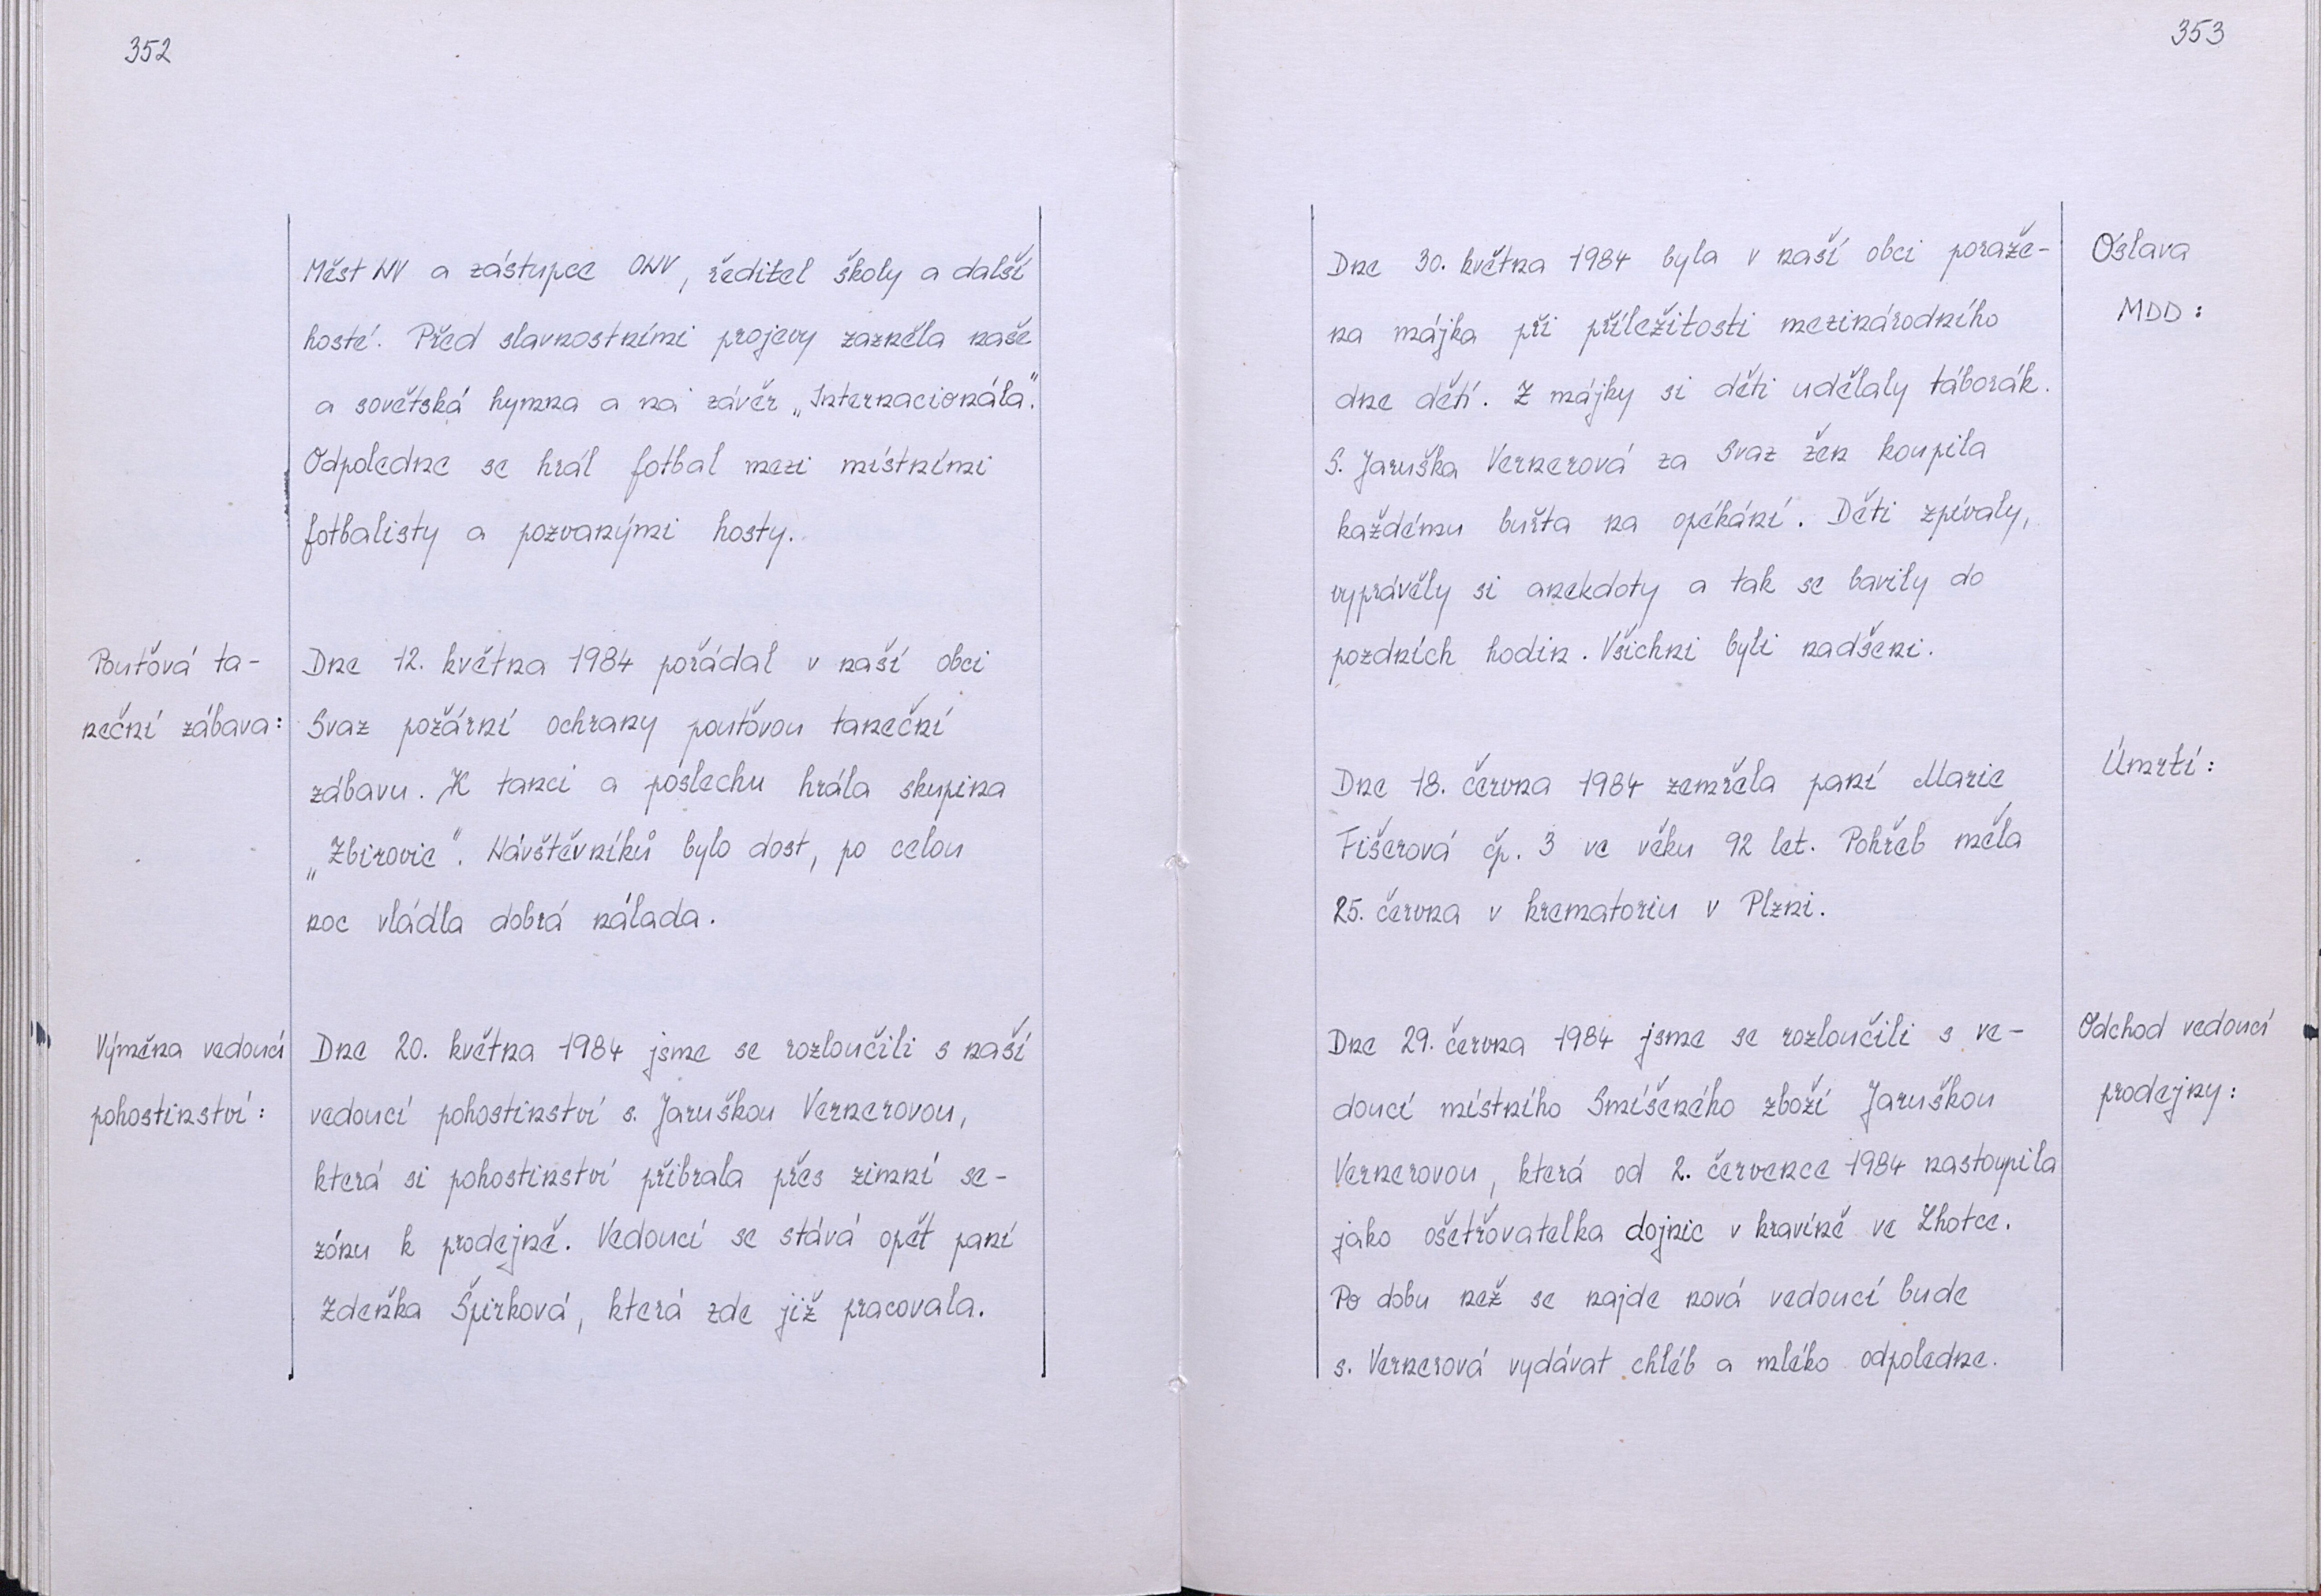 352
Měst NV a zástupce ONV, ředitel školy a další
hosté. Před slavnostními projevy zazněla naše
a sovětská hymna a na závěr „Internacionála".
Odpoledne se hrál fotbal mezi místními
fotbalisty a pozvanými hosty.
Pouťová ta-
neční zábava:
Dne 12. května 1984 pořádal v naší obci
Svaz požární ochrany pouťovou taneční
zábavu. K tanci a poslechu hrála skupina
„Zbirovie". Návštěvníků bylo dost, po celou
noc vládla dobrá nálada.
Výměna vedoucí
pohostinství:
Dne 20. května 1984 jsme se rozloučili s naší
vedoucí pohostinství s. Jaruškou Vernerovou,
která si pohostinství přibrala přes zimní se-
zónu k prodejně. Vedoucí se stává opět paní
Zdeňka Špirková, která zde již pracovala.
353
Oslava
MDD:
Dne 30. května 1984 byla v naší obci poraže-
na májka při příležitosti mezinárodního
dne dětí. Z májky si děti udělaly táborák.
S. Jaruška Vernerová za Svaz žen koupila
každému buřta na opékání. Děti zpívaly,
vyprávěly si anekdoty a tak se bavily do
pozdních hodin. Všichni byli nadšeni.
Úmrtí:
Dne 18. června 1984 zemřela paní Marie
Fišerová čp. 3 ve věku 92 let. Pohřeb měla
25. června v krematoriu v Plzni.
Odchod vedoucí
prodejny:
Dne 29. června 1984 jsme se rozloučili s ve-
doucí místního Smíšeného zboží Jaruškou
Vernerovou, která od 2. července 1984 nastoupila
jako ošetřovatelka dojnic v kravíně ve Lhotce.
Po dobu než se najde nová vedoucí bude
s. Vernerová vydávat chléb a mléko odpoledne.